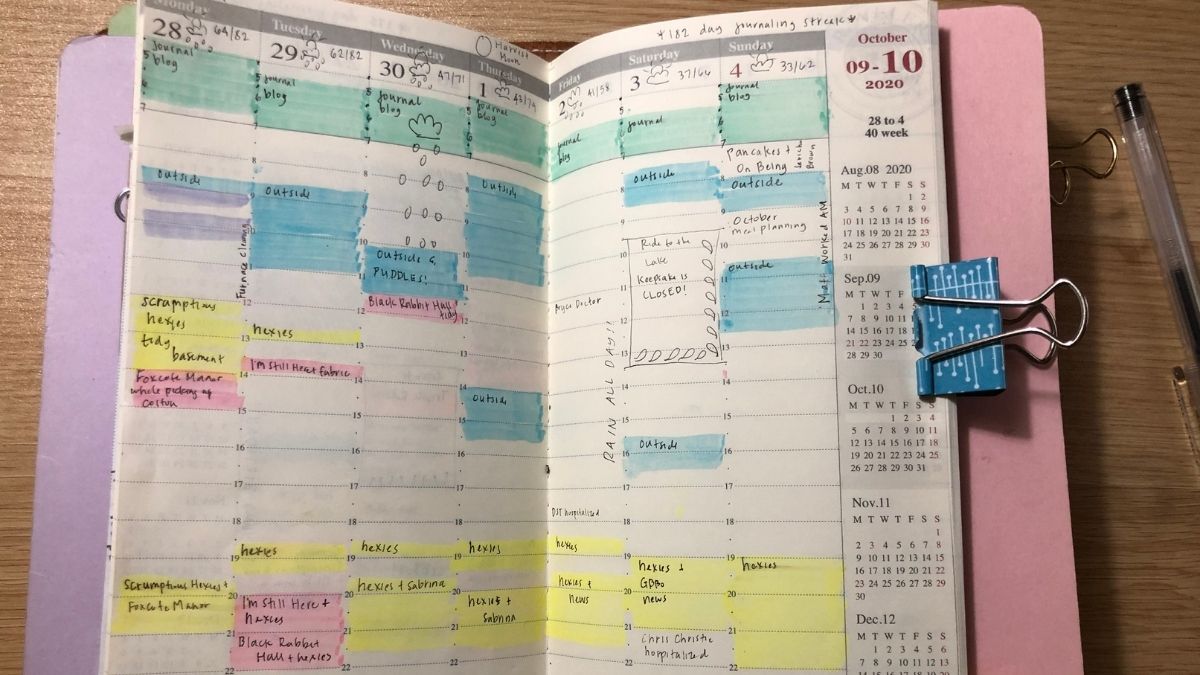 *182 day journaling streak*
Monday
28
64/82
Journal
blog
outside
scrumptious
hexies
tidy
basement
Foxcote Manor
whole picking of
Colton
Scrumptious Hexies +
Foxcote Manor
Tuesday
29
62/82
journal
blog
outside
Furnace cleaning
hexies
I'm Still Here + Fabric
hexies
I'm Still Here +
hexies
Black Rabbit
Hall + hexies
Wednesday
30
47/71
journal
blog
outside &
PUDDLES!
Black Rabbit Hall
tidy
hexies
hexies + Sabrina
Harvest
Moon
Thursday
1
43/74
journal
blog
outside
outside
hexies
hexies +
Sabrina
Friday
2
41/58
journal
blog
Doctor
RAIN ALL DAY!!
DJT hospitalized
hexies
hexies +
news
Saturday
3
37/66
journal
outside
Ride to the
Lake
Keepsake is
CLOSED!
outside
hexies +
GBBO
news
Chris Christie
hospitalized
Sunday
4
33/62
journal
blog
Pancakes +
On Being
Brown
outside
October
meal planning
Matt Worked AM
outside
hexies
October
09-10
2020
28 to 4
40 week
Aug.08 2020
M T W T F S S
1 2
3 4 5 6 7 8 9
10 11 12 13 14 15 16
17 18 19 20 21 22 23
24 25 26 27 28 29 30
31
Sep.09
M T W T F
1 2 3 4
7 8 9 10 11
14 15 16 17 18
21 22 23 24 25
28 29 30
Oct.10
M T W T F S S
1 2 3 4
5 6 7 8 9 10 11
12 13 14 15 16 17 18
19 20 21 22 23 24 25
26 27 28 29 30 31
Nov.11
M T W T F S S
1
2 3 4 5 6 7 8
9 10 11 12 13 14 15
16 17 18 19 20 21 22
23 24 25 26 27 28 29
30
Dec.12
M T W T F S S
1 2 3 4 5 6
7 8 9 10 11 12 13